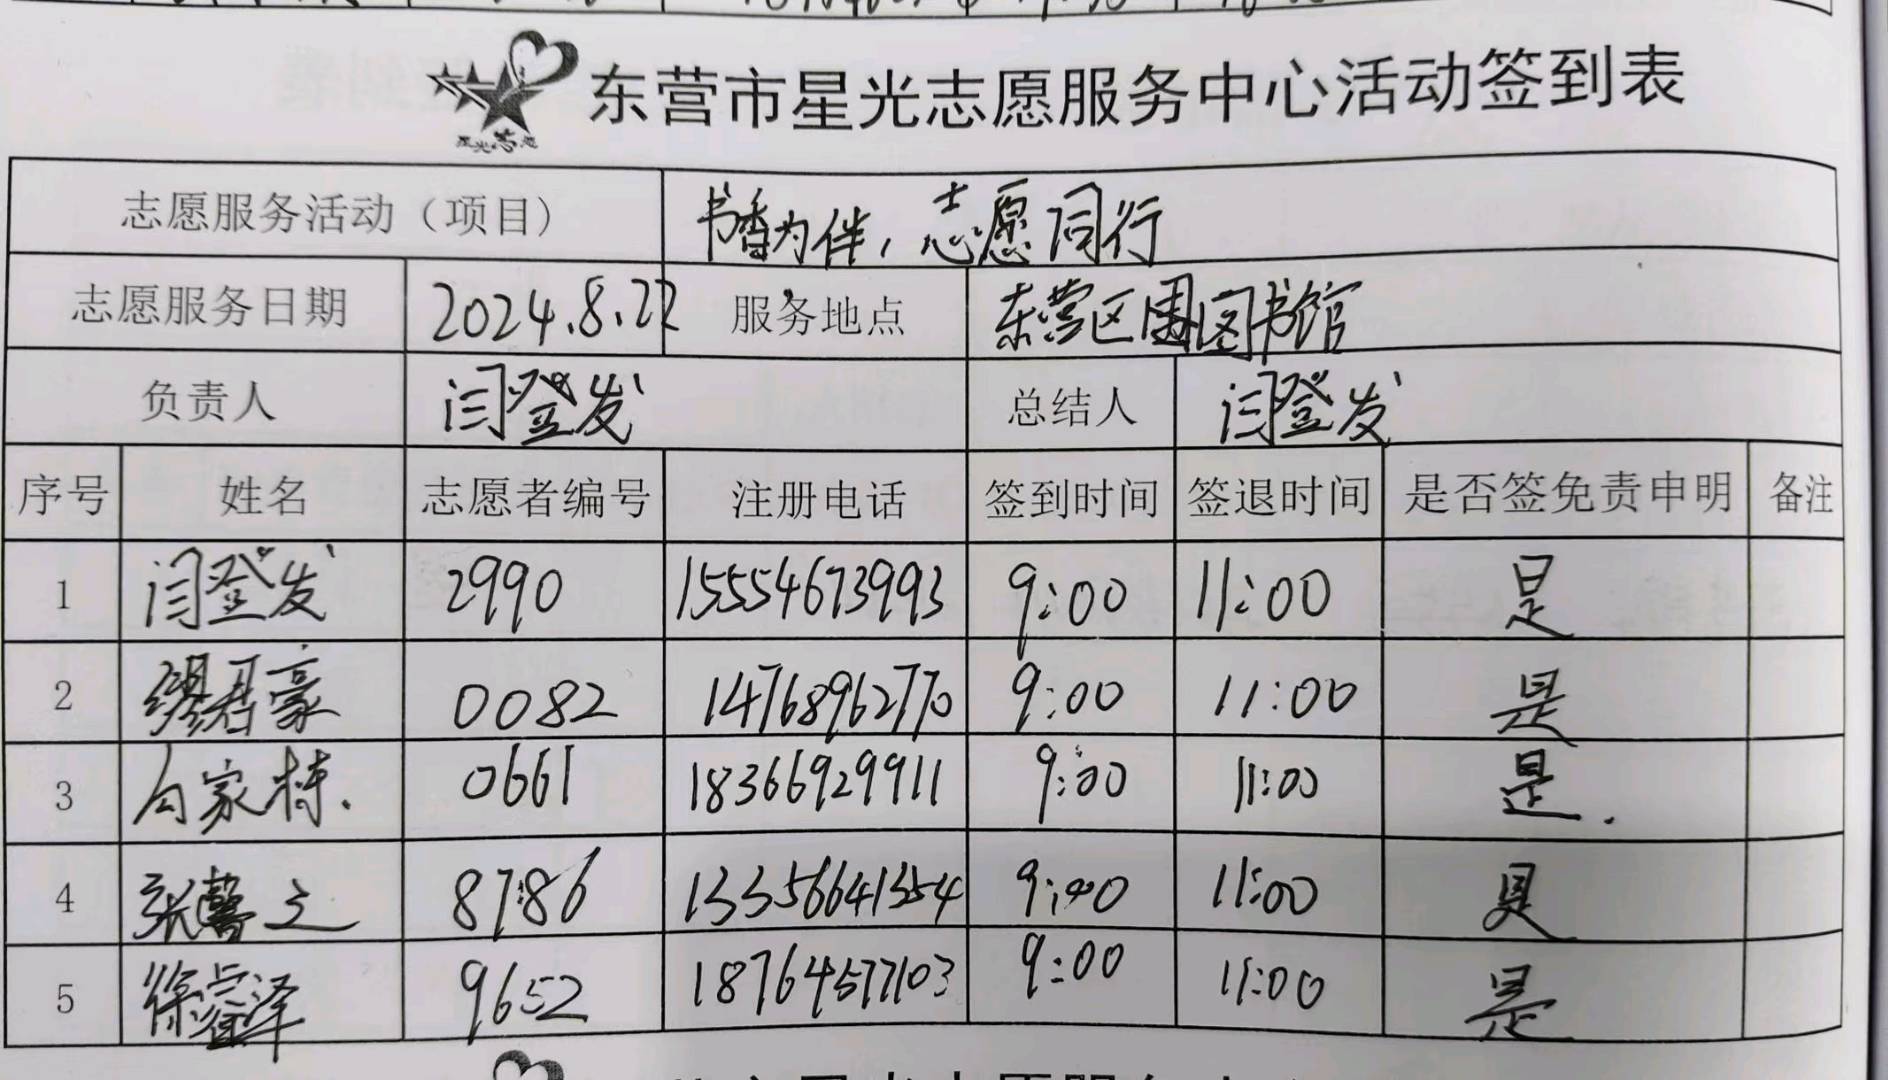 星光志愿
东营市星光志愿服务中心活动签到表
志愿服务活动（项目） 书香为伴，志愿同行
志愿服务日期 2024.8.22 服务地点 东营区图书馆
负责人 闫登发 总结人 闫登发
序号 姓名 志愿者编号 注册电话 签到时间 签退时间 是否签免责申明 备注
1 闫登发 2990 15554673993 9:00 11:00 是
2 缪君豪 0082 14768962770 9:00 11:00 是
3 勾家栋. 0661 18366929911 9:00 11:00 是.
4 张馨之 8786 13356641354 9:00 11:00 是
5 徐睿泽 9652 18764577103 9:00 11:00 是